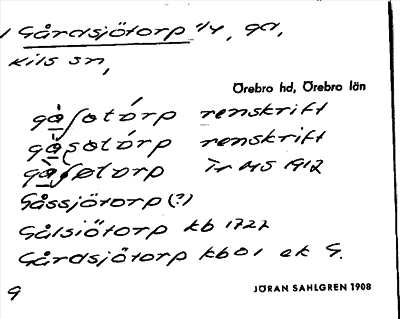 Gårdsjötorp 1/4, gd,
Kils sn,
Örebro hd, Örebro län
gåʃotórp renskrift
gåsotórp renskrift
gåʃøtórp Tr MS 1912
Gåssjötorp (?)
Gålsiötorp kb 1722
Gårdsjötorp kb01 ek G.
JÖRAN SAHLGREN 1908
g